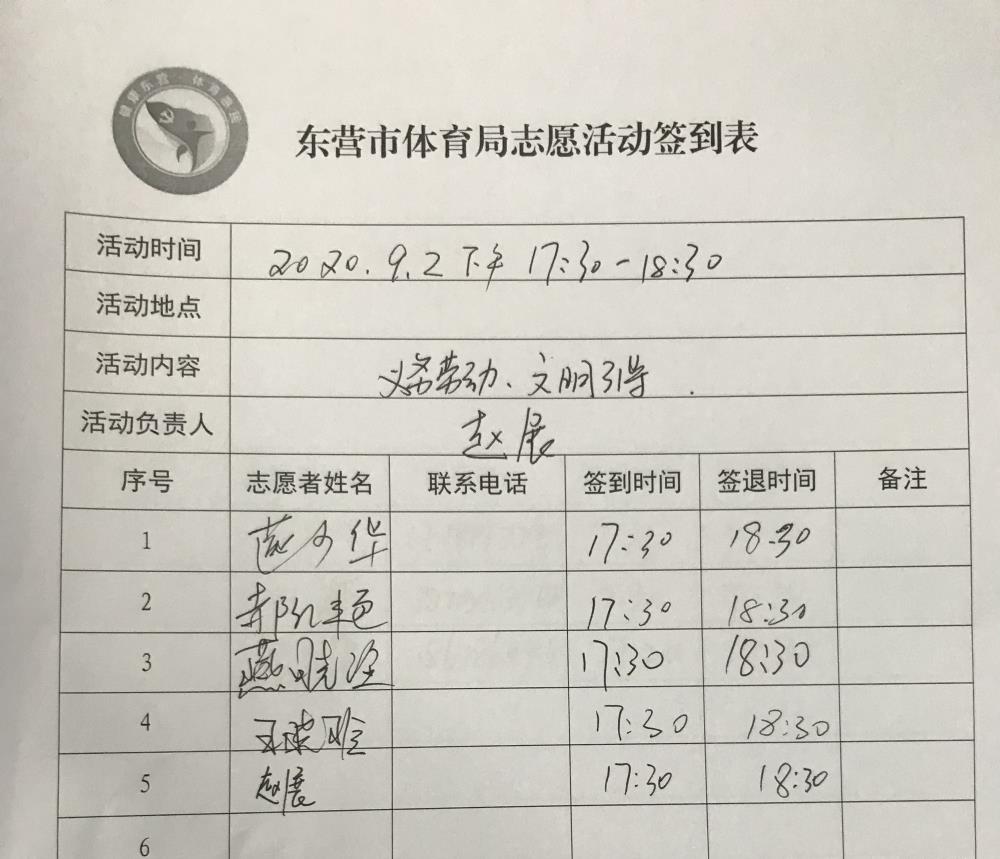 健康东营 体育惠民
东营市体育局志愿活动签到表
活动时间 2020.9.2 下午 17:30-18:30
活动地点
活动内容 义务劳动、文明引导.
活动负责人 赵展
序号 志愿者姓名 联系电话 签到时间 签退时间 备注
1 华 17:30 18:30
2 郝 艳 17:30 18:30
3 燕晓 17:30 18:30
4 王 雅 17:30 18:30
5 赵展 17:30 18:30
6